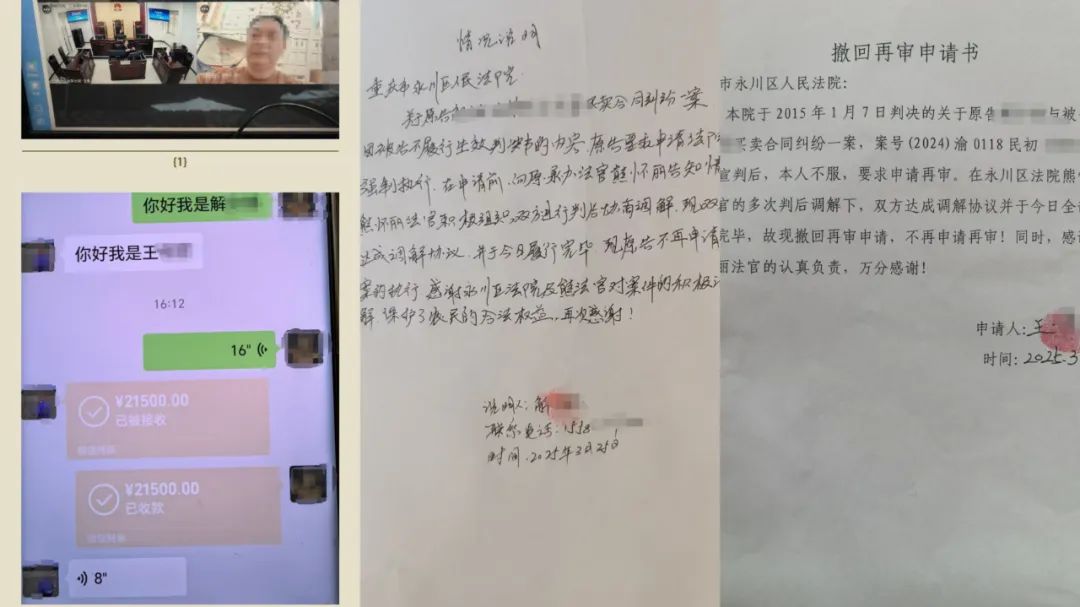 (1)
你好我是解
你好我是王
16:12
16"
¥21500.00
已被接收
¥21500.00
已收款
8"
情况说明
重庆市永川区人民法院
关于原告
买卖合同纠纷一案
因被告不履行生效判决书的内容,原告要求申请法院
强制执行,在申请前,向原承办法官熊怀丽告知情
熊怀丽法官积极组织双方进行判后协商调解,现双
达成调解协议,并于今日履行完毕,现原告不再申请
案的执行,感谢永川区法院及熊法官对案件的积极
解,保护了农民的合法权益,再次感谢!
说明人:解
联系电话:
时间:2025年3月25日
撤回再审申请书
市永川区人民法院:
本院于2015年1月7日判决的关于原告
与被
买卖合同纠纷一案,案号(2024)渝0118民初
宣判后,本人不服,要求申请再审。在永川区法院熊
官的多次判后调解下,双方达成调解协议并于今日全
完毕,故现撤回再审申请,不再申请再审!同时,感
丽法官的认真负责,万分感谢!
申请人:王
时间:2025.3